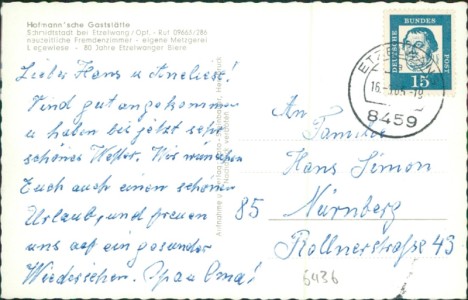 Hofmann'sche Gaststätte
Schmidtstadt bei Etzelwang/Opf. - Ruf 09663/286
neuzeitliche Fremdenzimmer - eigene Metzgerei
Liegewiese - 80 Jahre Etzelwanger Biere
DEUTSCHE BUNDESPOST
15
8459
Liebe Hans u Anneliese!
Sind gut angekommen
u haben bis jetzt sehr
schönes Wetter. Wir wünschen
Euch auch einen schönen
Urlaub, und freuen
uns auf ein gesundes
Wiedersehen. Opa u Oma!
An
Familie
Hans Simon
85 Nürnberg
Rollnerstraße 43
6436